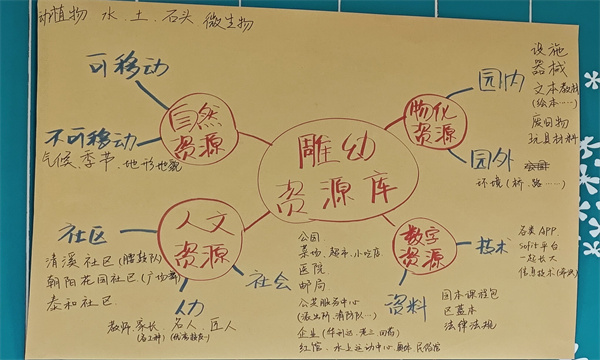 动植物 水、土、石头 微生物
可移动
自然
资源
不可移动
气候、季节、地形地貌
雕幼
资源库
物化
资源
园内
设施
器械
文本教材
(绘本……)
废旧物
玩具材料
园外
环境(桥、路……)
人文
资源
社区
清溪社区(腰鼓队)
朝阳花园社区(广场舞)
泰和社区
人力
教师、家长、名人、匠人
社会
公园
菜场、超市、小吃店
医院
邮局
公共服务中心
(派出所、消防队…)
企业
红馆、水上运动中心
数字
资源
技术
各类APP
平台
一起长大
信息技术
资料
园本课程包
区蓝本
法律法规